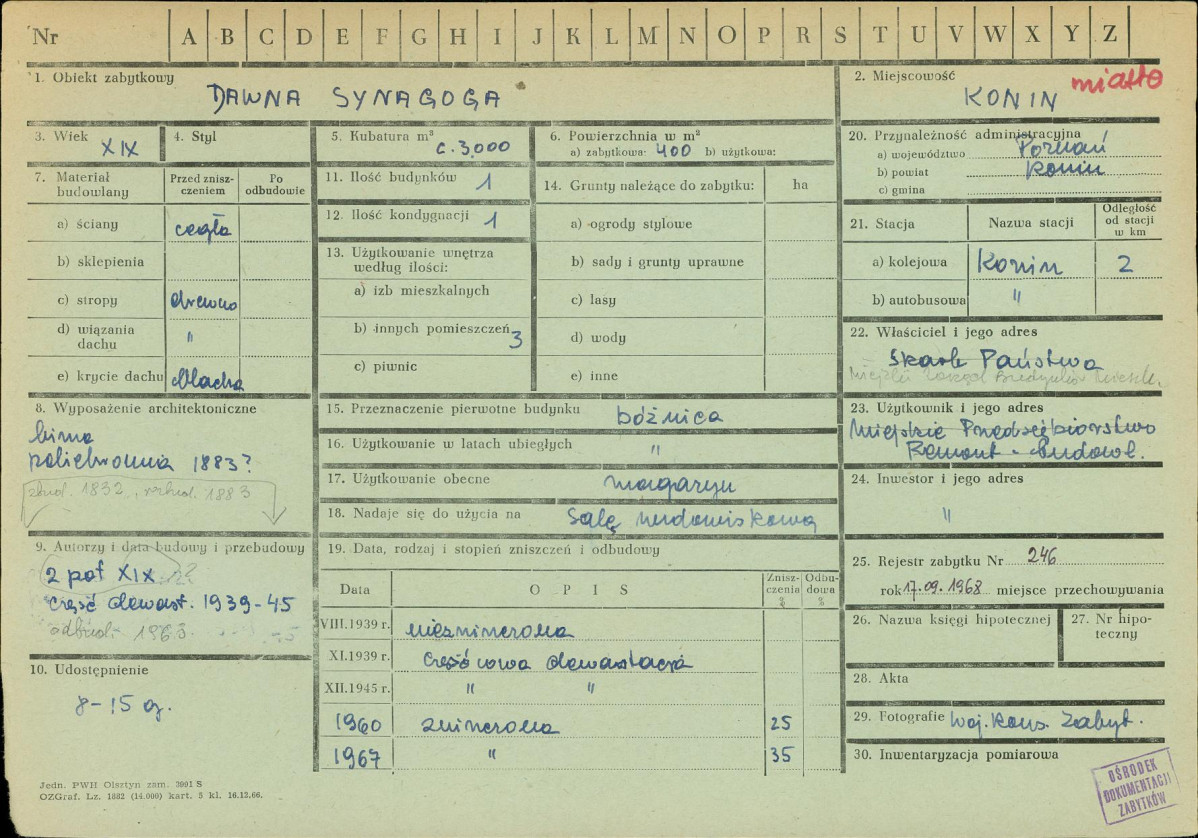 Nr A B C D E F G H I J K L M N O P R S T U V W X Y Z
1. Obiekt zabytkowy
DAWNA SYNAGOGA
2. Miejscowość
KONIN miasto
3. Wiek
XIX
4. Styl
5. Kubatura m³
c. 3,000
6. Powierzchnia w m²
a) zabytkowa: 400 b) użytkowa:
20. Przynależność administracyjna
a) województwo Poznań
b) powiat Konin
c) gmina
7. Materiał budowlany
Przed zniszczeniem
Po odbudowie
a) ściany cegła
b) sklepienia
c) stropy drewno
d) wiązania dachu "
e) krycie dachu blacha
11. Ilość budynków 1
12. Ilość kondygnacji 1
13. Użytkowanie wnętrza
według ilości:
a) izb mieszkalnych
b) innych pomieszczeń 3
c) piwnic
14. Grunty należące do zabytku: ha
a) ogrody stylowe
b) sady i grunty uprawne
c) lasy
d) wody
e) inne
21. Stacja
Nazwa stacji
Odległość od stacji w km
a) kolejowa Konin 2
b) autobusowa "
22. Właściciel i jego adres
Skarb Państwa
Miejski Zarząd Budynków
8. Wyposażenie architektoniczne
bima
polichromia 1883?
zbud. 1832, rozbud. 1883
15. Przeznaczenie pierwotne budynku bóżnica
16. Użytkowanie w latach ubiegłych "
17. Użytkowanie obecne magazyn
18. Nadaje się do użycia na salę widowiskową
23. Użytkownik i jego adres
Miejskie Przedsiębiorstwo
Remont - Budowl.
24. Inwestor i jego adres
"
9. Autorzy i data budowy i przebudowy
2 poł XIX
część dewast. 1939-45
odbud. 1963.
19. Data, rodzaj i stopień zniszczeń i odbudowy
Data
O P I S
Zniszczenia %
Odbudowa %
VIII.1939 r. niezniszczona
XI.1939 r. częściowa dewastacja
XII.1945 r. " "
1960 zniszczona 25
1967 " 35
25. Rejestr zabytku Nr 246
rok 17.09.1968 miejsce przechowywania
26. Nazwa księgi hipotecznej
27. Nr hipoteczny
10. Udostępnienie
8-15 g.
28. Akta
29. Fotografie Woj. Kons. Zabyt.
30. Inwentaryzacja pomiarowa
OŚRODEK
DOKUMENTACJI
ZABYTKÓW
Jedn. PWH Olsztyn zam. 3991 S
OZGraf. Lz. 1882 (14.000) kart. 5 kl. 16.12.66.